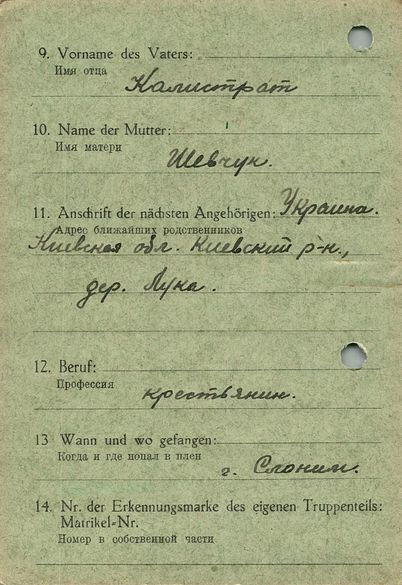 9. Vorname des Vaters:
Имя отца
Калистрат
10. Name der Mutter:
Имя матери
Шевчук.
11. Anschrift der nächsten Angehörigen: Украина.
Адрес ближайших родственников
Киевская обл. Киевский р-н.,
дер. Лука.
12. Beruf:
Профессия
крестьянин.
13 Wann und wo gefangen:
Когда и где попал в плен
г. Слоним.
14. Nr. der Erkennungsmarke des eigenen Truppenteils:
Matrikel-Nr.
Номер в собственной части